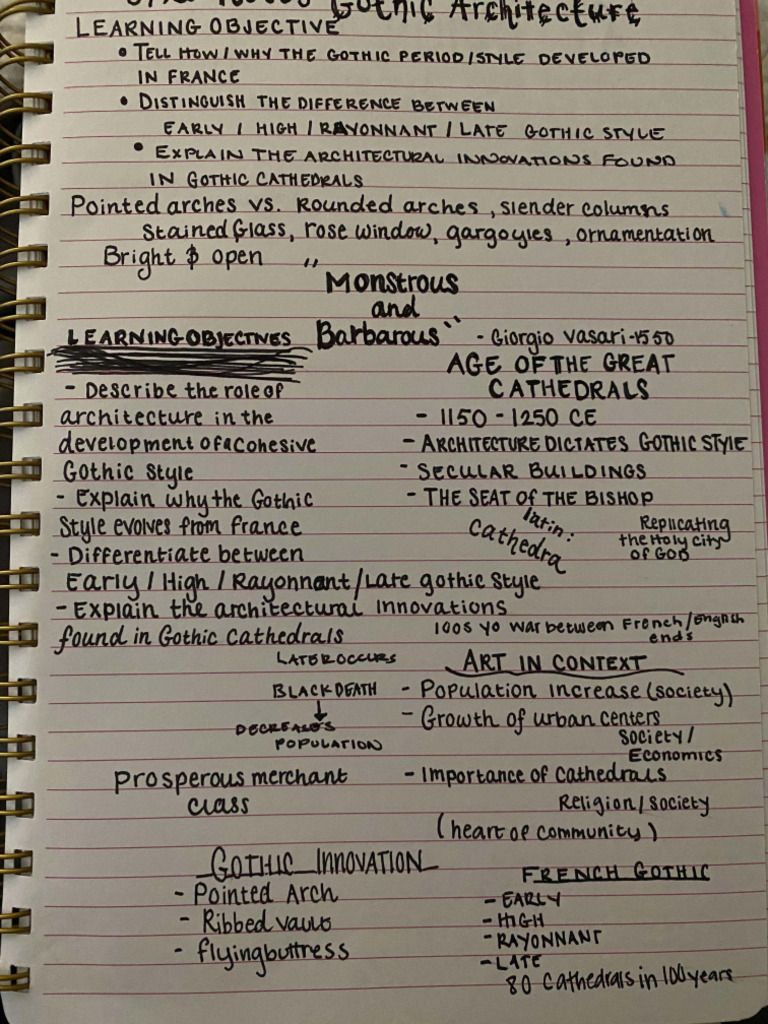 Gothic Architecture
LEARNING OBJECTIVE
• TELL HOW / WHY THE GOTHIC PERIOD / STYLE DEVELOPED
IN FRANCE
• DISTINGUISH THE DIFFERENCE BETWEEN
EARLY / HIGH / RAYONNANT / LATE GOTHIC STYLE
• EXPLAIN THE ARCHITECTURAL INNOVATIONS FOUND
IN GOTHIC CATHEDRALS
Pointed arches vs. Rounded arches, slender columns
Stained Glass, rose window, gargoyles, ornamentation
Bright & open
"Monstrous
and
Barbarous" - Giorgio Vasari - 1550
LEARNING OBJECTIVES
- Describe the role of
architecture in the
development of a Cohesive
Gothic Style
- Explain why the Gothic
Style evolves from france
- Differentiate between
Early / High / Rayonnant / Late gothic Style
- Explain the architectural innovations
found in Gothic Cathedrals
AGE OF THE GREAT
CATHEDRALS
- 1150 - 1250 CE
- ARCHITECTURE DICTATES GOTHIC STYLE
- SECULAR BUILDINGS
- THE SEAT OF THE BISHOP
latin:
Cathedra
Replicating
the Holy city
of GOD
100s yo war between French / English
ends
LATER OCCURS
BLACK DEATH
↓
DECREASES
POPULATION
ART IN CONTEXT
- Population increase (society)
- Growth of urban centers
Society /
Economics
Prosperous merchant
class
- Importance of Cathedrals
Religion / Society
(heart of community)
GOTHIC INNOVATION
- Pointed Arch
- Ribbed vault
- flying buttress
FRENCH GOTHIC
- EARLY
- HIGH
- RAYONNANT
- LATE
80 Cathedrals in 100 years